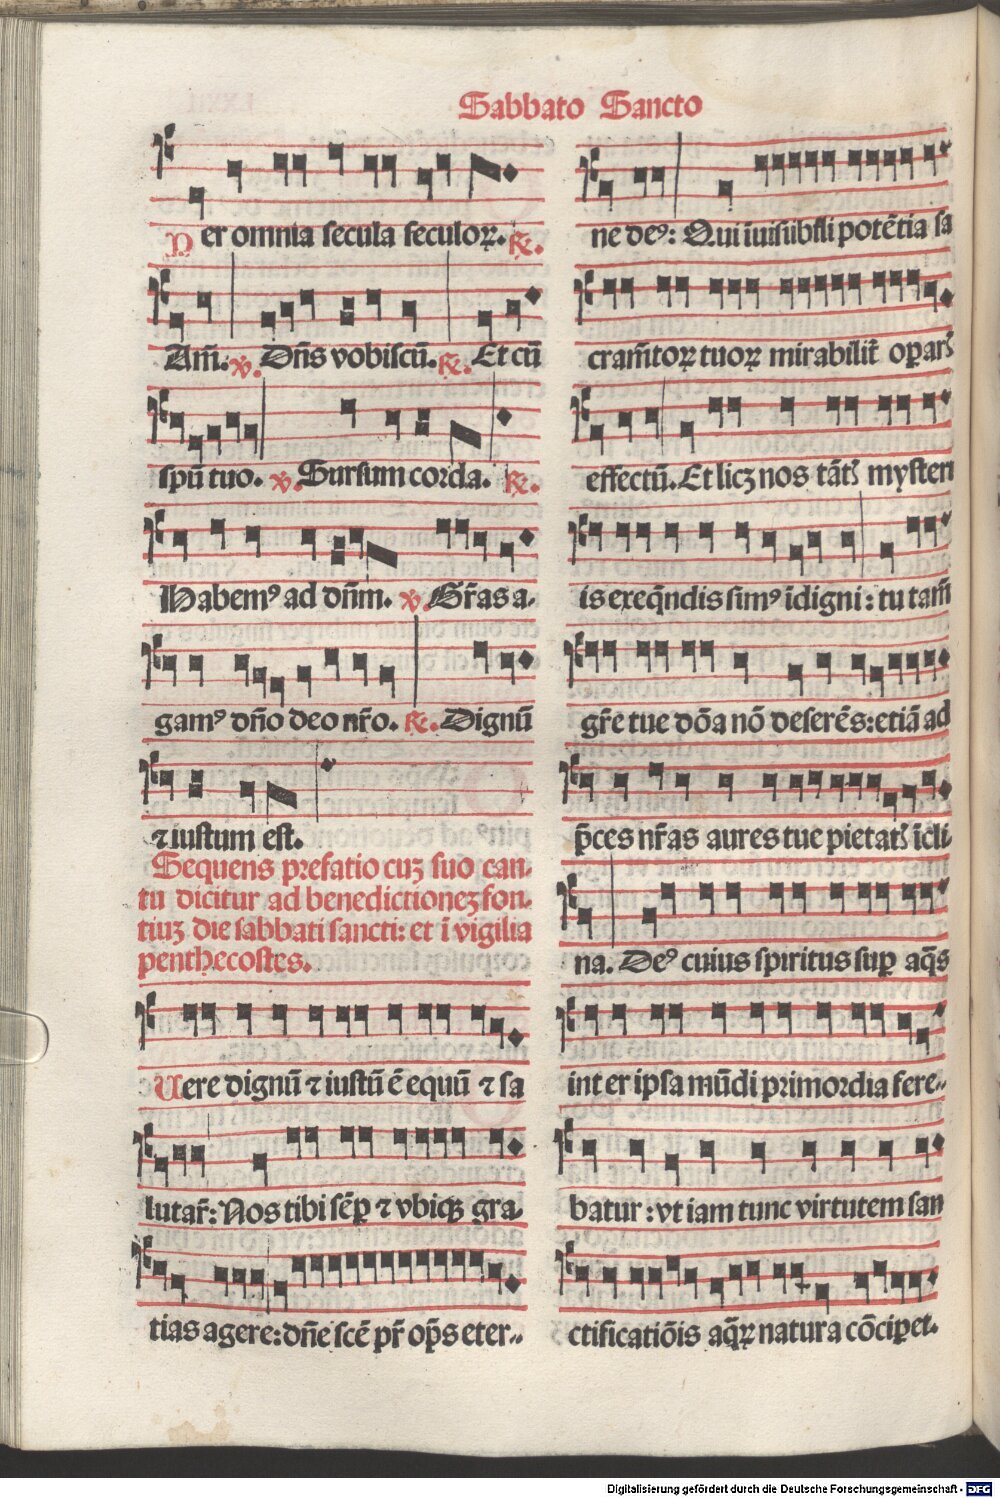 Sabbato Sancto
Per omnia secula seculoꝝ. ℟.
Am̄. ℣. Dn̄s vobiscū. ℟. Et cū
spū tuo. ℣. Sursum corda. ℟.
Habemꝰ ad dn̄m. ℣. Gr̄as a-
gamꝰ dn̄o deo nr̄o. ℟. Dignū
⁊ iustum est.
Sequens prefatio cuꝫ suo can-
tu dicitur ad benedictioneꝫ fon-
tiuꝫ die sabbati sancti: et ī vigilia
penthecostes.
Uere dignū ⁊ iustū ē equū ⁊ sa
lutar̄: Nos tibi sēꝑ ⁊ vbiqꝫ gra-
tias agere: dn̄e scē pr̄ op̄s eter-
ne deꝰ: Qui īuisibili potētia sa
cram̄toꝝ tuoꝝ mirabilit̄ oꝑarꝭ
effectū. Et licꝫ nos tātꝭ mysteri
is exeq̄ndis simꝰ īdigni: tu tam̄
gr̄e tue dōa nō deserēs: etiā ad
p̄ces nr̄as aures tue pietatꝭ īcli-
na. Deꝰ cuius spiritus suꝑ aq̄s
inter ipsa mūdi primordia fere-
batur: vt iam tunc virtutem san
ctificatiōis aq̄ꝝ natura cōciꝑet.
Digitalisierung gefördert durch die Deutsche Forschungsgemeinschaft - DFG